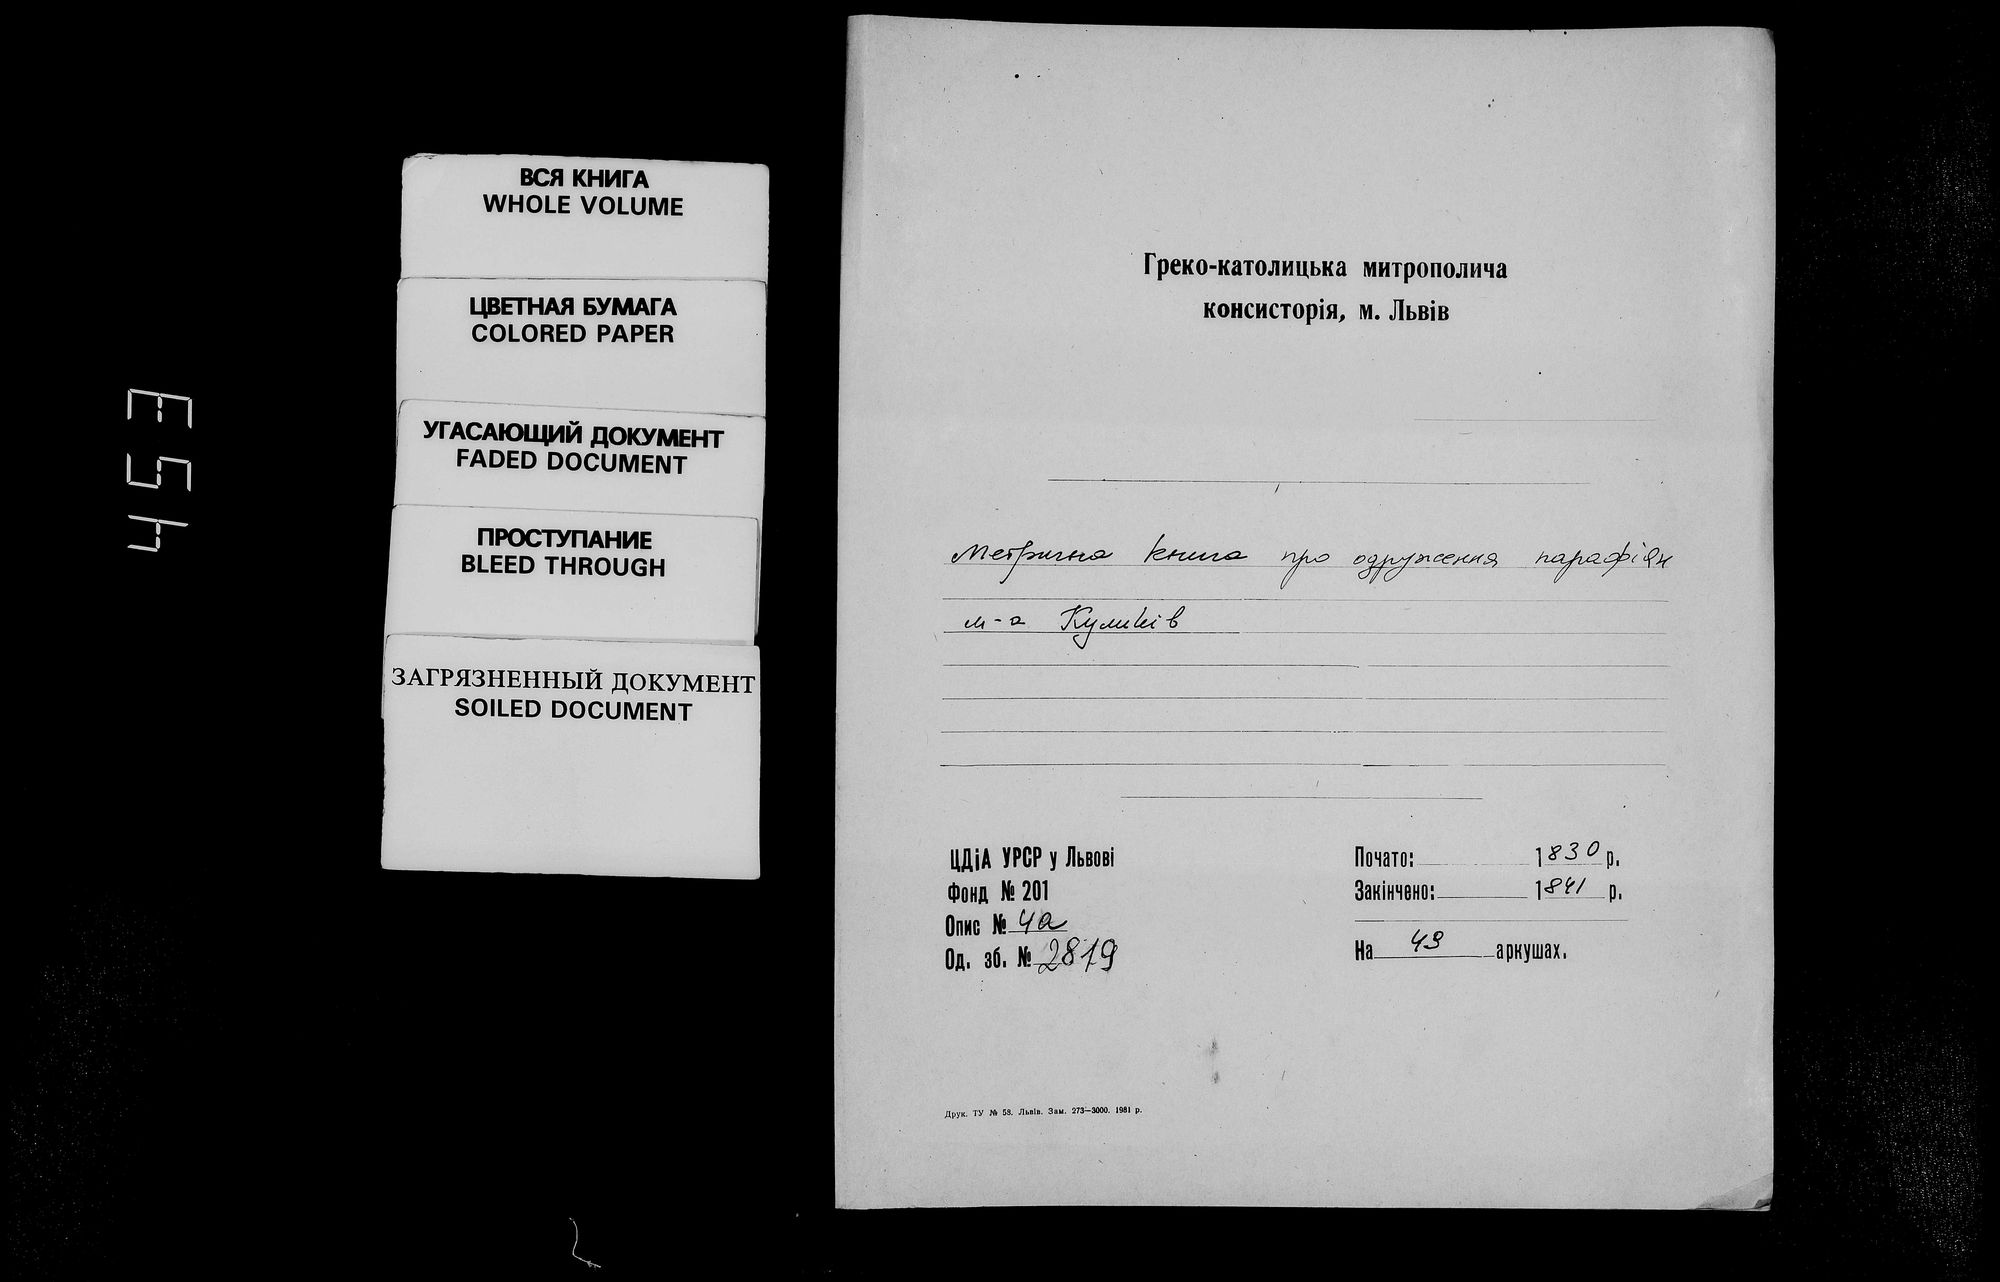 ВСЯ КНИГА
WHOLE VOLUME
ЦВЕТНАЯ БУМАГА
COLORED PAPER
УГАСАЮЩИЙ ДОКУМЕНТ
FADED DOCUMENT
ПРОСТУПАНИЕ
BLEED THROUGH
ЗАГРЯЗНЕННЫЙ ДОКУМЕНТ
SOILED DOCUMENT
Греко-католицька митрополича
консисторія, м. Львів
Метрична книга про одруження парафіян
м-а Куликів
ЦДіА УРСР у Львові
Фонд № 201
Опис № 4а
Од. зб. № 2819
Почато: 1830 р.
Закінчено: 1841 р.
На 49 аркушах.
Друк. ТУ № 58. Львів. Зам. 273—3000. 1981 р.